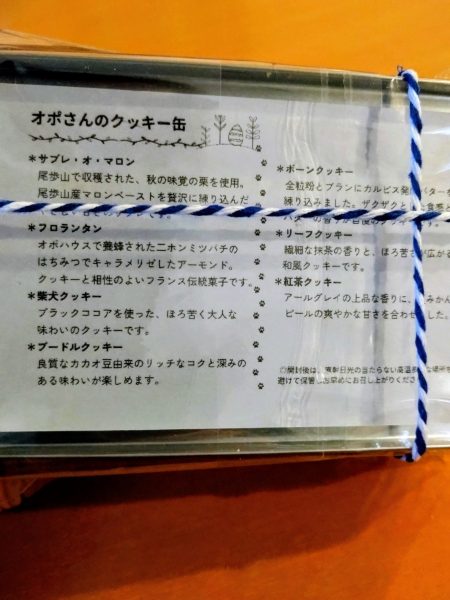 オポさんのクッキー缶
＊サブレ・オ・マロン
尾歩山で収穫された、秋の味覚の栗を使用。
尾歩山産マロンペーストを贅沢に練り込んだ
＊フロランタン
オポハウスで養蜂された二ホンミツバチの
はちみつでキャラメリゼしたアーモンド。
クッキーと相性のよいフランス伝統菓子です。
＊柴犬クッキー
ブラックココアを使った、ほろ苦く大人な
味わいのクッキーです。
＊プードルクッキー
良質なカカオ豆由来のリッチなコクと深みの
ある味わいが楽しめます。
＊ボーンクッキー
全粒粉とブランにカルピス発酵バターを
練り込みました。ザクザクとした食感と
バターの香りが自慢のクッキーです。
＊リーフクッキー
繊細な抹茶の香りと、ほろ苦さが広がる
和風クッキーです。
＊紅茶クッキー
アールグレイの上品な香りに、みかん
ピールの爽やかな甘さを合わせました。
◎開封後は、直射日光の当たらない高温多湿な場所を
避けて保管しお早めにお召し上がりください